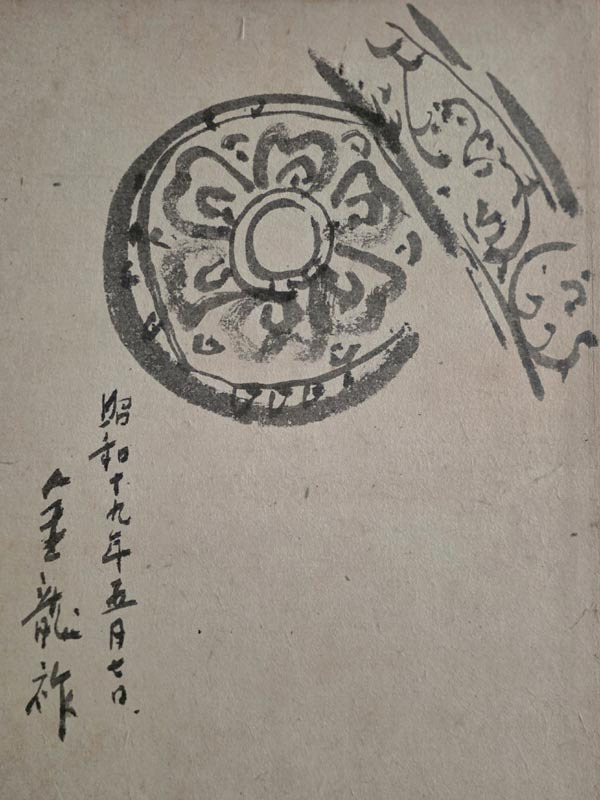 昭和十九年五月七日.
金龍祚